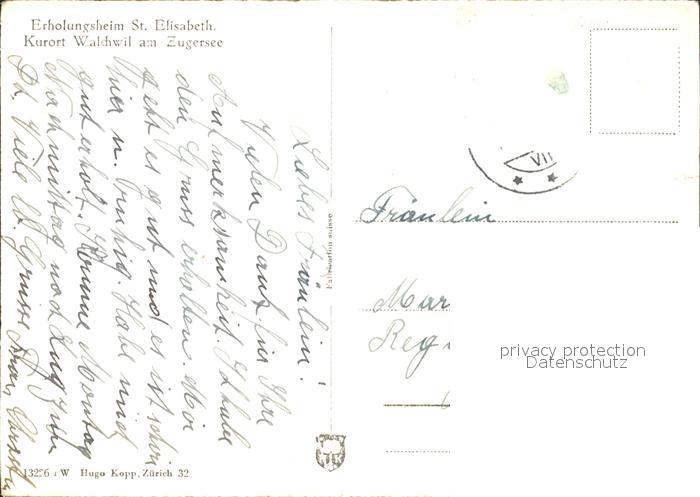 Erholungsheim St. Elisabeth.
Kurort Walchwil am Zugersee
Liebes Fräulein!
Vielen Dank für Ihre
Aufmerksamkeit. Ich habe
den Gruss erhalten. Mir
geht es gut und es ist schön
hier u. ruhig. Habe mich
gut erholt. Komme Montag
Nachmittag nach Zug zum
Dr. Viele lb. Grüsse Frau
Fabrication suisse
VII
Fräulein
Mar
Reg
privacy protection
Datenschutz
13226 z W Hugo Kopp, Zürich 32